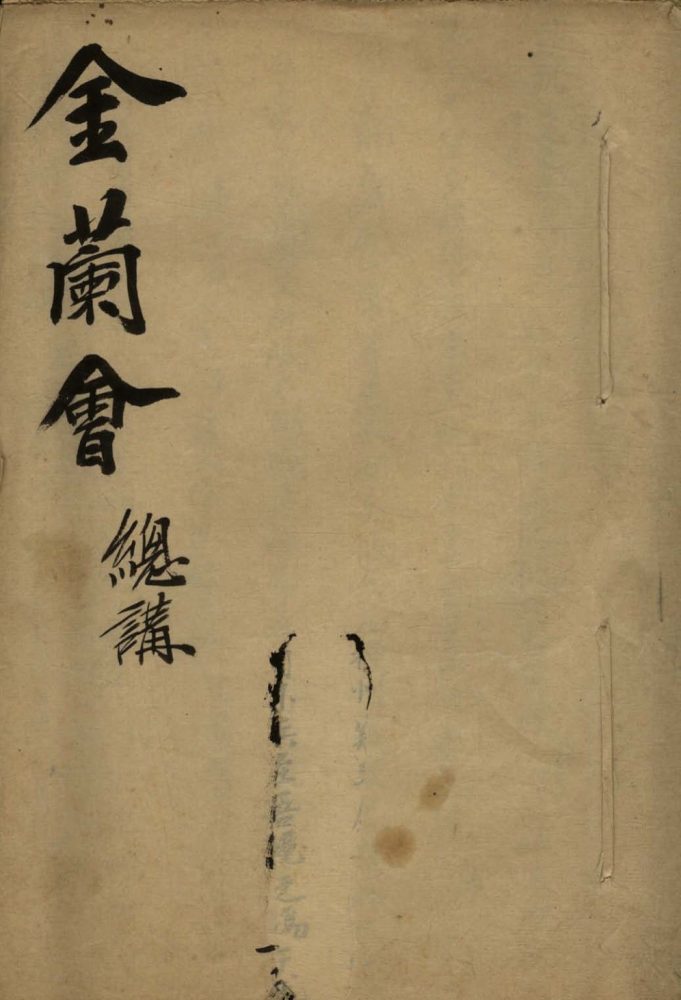 金蘭會
總講